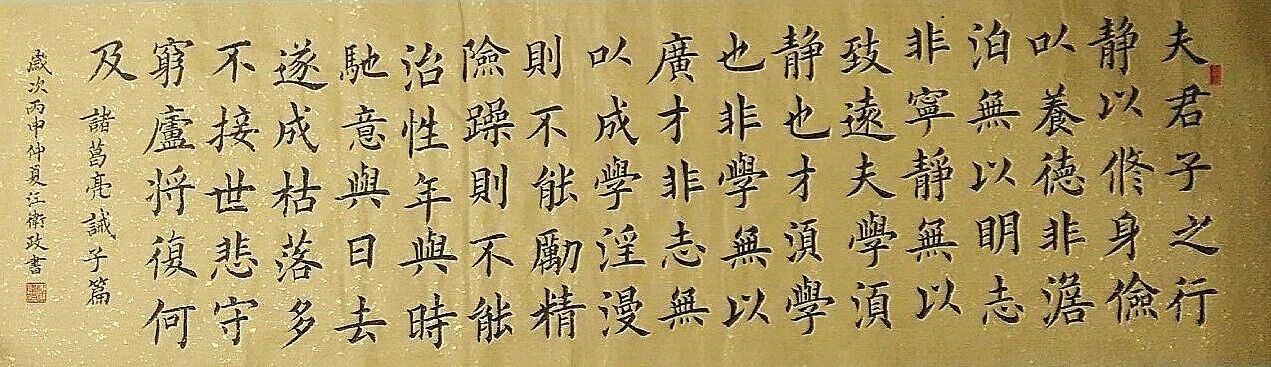 夫君子之行
静以修身儉
以養德非澹
泊無以明志
非寧静無以
致遠夫學須
静也才須學
也非學無以
廣才非志無
以成學淫漫
則不能勵精
險躁則不能
治性年與時
馳意與日去
遂成枯落多
不接世悲守
窮廬將復何
及
諸葛亮誡子篇
歲次丙申仲夏江衛政書